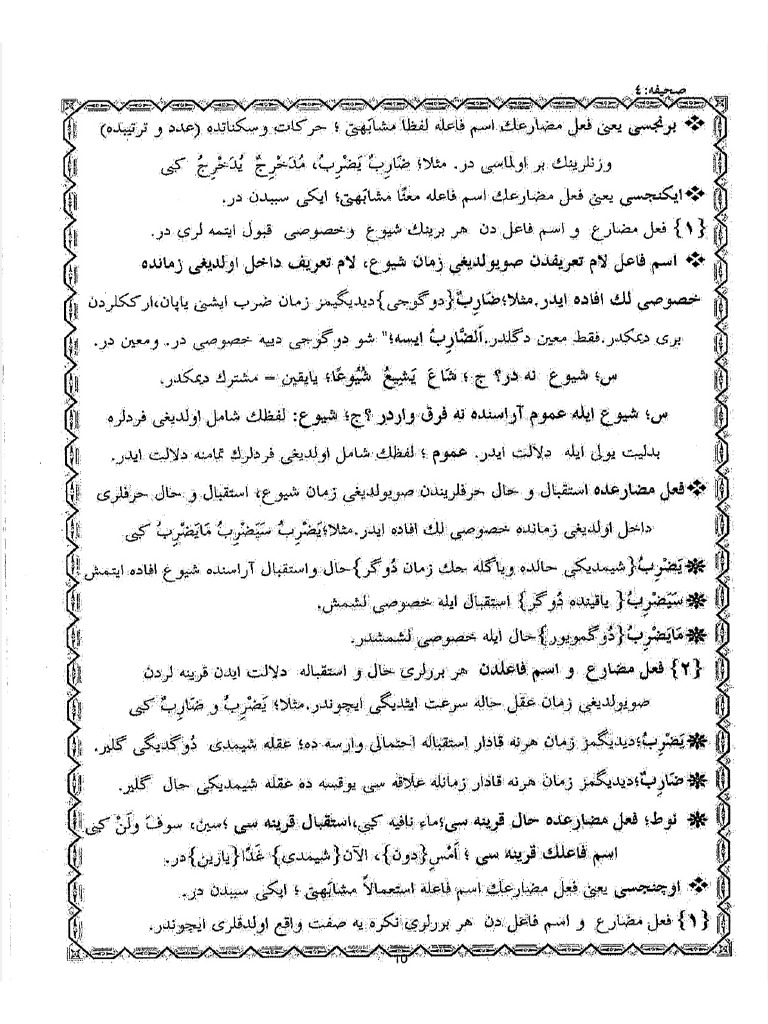 صحيفه: ٤
❖ برنجسى يعنى فعل مضارعك اسم فاعله لفظا مشابهتى ؛ حركات وسكناتده (عدد و ترتيبده)
وزنلرينك بر اولماسى در. مثلا؛ ضَارِبٌ يَضْرِبُ، مُدَحْرِجٌ يُدَحْرِجُ كبى
❖ ايكنجسى يعنى فعل مضارعك اسم فاعله معنًا مشابهتى؛ ايكى سببدن در.
{١} فعل مضارع و اسم فاعل دن هر برينك شيوع وخصوصى قبول ايتمه لرى در.
❖ اسم فاعل لام تعريفدن صويولديغى زمان شيوع، لام تعريف داخل اولديغى زمانده
خصوصى لك افاده ايدر.مثلا؛ضَارِبٌ{دوگوجى}ديديگيمز زمان ضرب ايشنى ياپان،ارككلردن
برى ديمكدر.فقط معين دگلدر.اَلضَّارِبُ ايسه؛" شو دوگوجى دييه خصوصى در. ومعين در.
س؛ شيوع نه در؟ ج ؛ شَاعَ يَشِيعُ شُيُوعًا؛ يايقين = مشترك ديمكدر.
س؛ شيوع ايله عموم آراسنده نه فرق واردر ؟ج؛ شيوع: لفظك شامل اولديغى فردلره
بدليت يولى ايله دلالت ايدر. عموم ؛ لفظك شامل اولديغى فردلرك تمامنه دلالت ايدر.
❖ فعل مضارعده استقبال و حال حرفلريندن صويولديغى زمان شيوع، استقبال و حال حرفلرى
داخل اولديغى زمانده خصوصى لك افاده ايدر.مثلا؛يَضْرِبُ سَيَضْرِبُ مَايَضْرِبُ كبى
❋ يَضْرِبُ{شيمديكى حالده وياگله جك زمان دُوگر}حال واستقبال آراسنده شيوع افاده ايتمش
❋ سَيَضْرِبُ{ ياقينده دُوگر} استقبال ايله خصوصى لشمش.
❋ مَايَضْرِبُ{دُوگمويور}حال ايله خصوصى لشمشدر.
{٢} فعل مضارع و اسم فاعلدن هر بررلرى حال و استقباله دلالت ايدن قرينه لردن
صويولديغى زمان عقل حاله سرعت ايتديگى ايچوندر.مثلا؛ يَضْرِبُ و ضَارِبٌ كبى
❋ يَضْرِبُ؛ديديگمز زمان هرنه قادار استقباله احتمالى وارسه ده؛ عقله شيمدى دُوگديگى گلير.
❋ ضَارِبٌ؛ديديگمز زمان هرنه قادار زمانله علاقه سى يوقسه ده عقله شيمديكى حال گلير.
❋ نوط؛ فعل مضارعده حال قرينه سى؛ماء نافيه كبى،استقبال قرينه سى ؛سين، سوفَ ولَنْ كبى
اسم فاعلك قرينه سى ؛ اَمْسِ{دون}، الآن{شيمدى} غَدًا{يازين}در.
❖ اوچنجسى يعنى فعل مضارعك اسم فاعله استعمالاً مشابهتى ؛ ايكى سببدن در.
{١} فعل مضارع و اسم فاعل دن هر بررلرى نكره يه صفت واقع اولدقلرى ايچوندر.
10